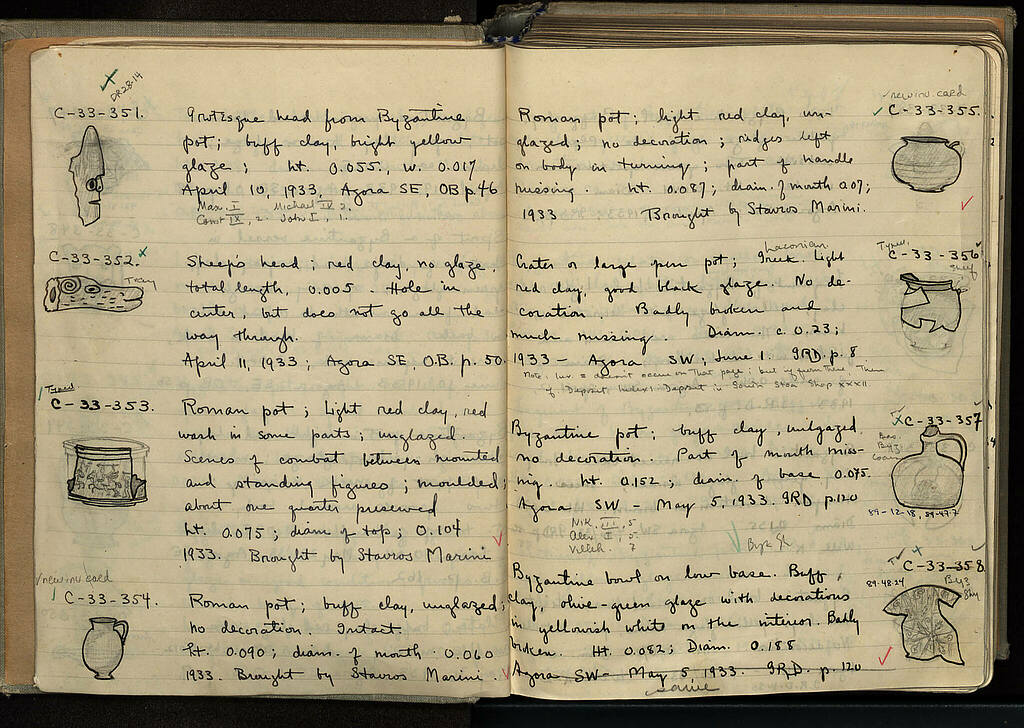 DR28-14
C-33-351.
Grotesque head from Byzantine
pot; buff clay, bright yellow
glaze; ht. 0.055, w. 0.017
April 10, 1933, Agora SE, OB p.46
Max. I Michael IV 2.
Const IX, 2. John I, 1.
C-33-352.
Tray
Sheep's head; red clay, no glaze,
total length, 0.005. Hole in
center, but does not go all the
way through.
April 11, 1933; Agora SE, O.B. p. 50
Typed
C-33-353.
Roman pot; Light red clay, red
wash in some parts; unglazed.
Scenes of combat between mounted
and standing figures; moulded;
about one quarter preserved
ht. 0.075; diam of top; 0.104
1933. Brought by Stavros Marini
new inv card
C-33-354.
Roman pot; buff clay, unglazed;
no decoration. Intact.
ht. 0.090; diam. of mouth 0.060
1933. Brought by Stavros Marini.
new inv. card
C-33-355.
Roman pot; light red clay, un-
glazed; no decoration; ridges left
on body in turning; part of handle
missing. ht. 0.087; diam. of mouth 0.07;
1933 Brought by Stavros Marini.
Typed,
C-33-356
Laconian
Crater or large open pot; Greek. Light
red clay, good black glaze. No de-
coration. Badly broken and
much missing. Diam. c. 0.23;
1933 - Agora SW; June 1. GRD. p. 8
Note: deposit occurs on that page; but
of Deposit Index! Deposit is South Stoa Shop XXXII
C-33-357
Byz.
Byzantine pot; buff clay, unglazed
no decoration. Part of mouth miss-
ing. ht. 0.152; diam. of base 0.075.
Agora SW - May 5, 1933. GRD p.120
89-12-18, 89-47-7
Nik. III, 5
Alex. I, 5
Villeh. 7
C-33-358
89-48-24
Byz
Byzantine bowl on low base. Buff
clay, olive-green glaze with decorations
in yellowish white on the interior. Badly
broken. Ht. 0.082; Diam. 0.188
Agora SW - May 5, 1933. GRD. p. 120
same